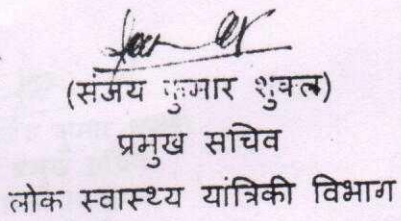 (संजय कुमार शुक्ल)
प्रमुख सचिव
लोक स्वास्थ्य यांत्रिकी विभाग